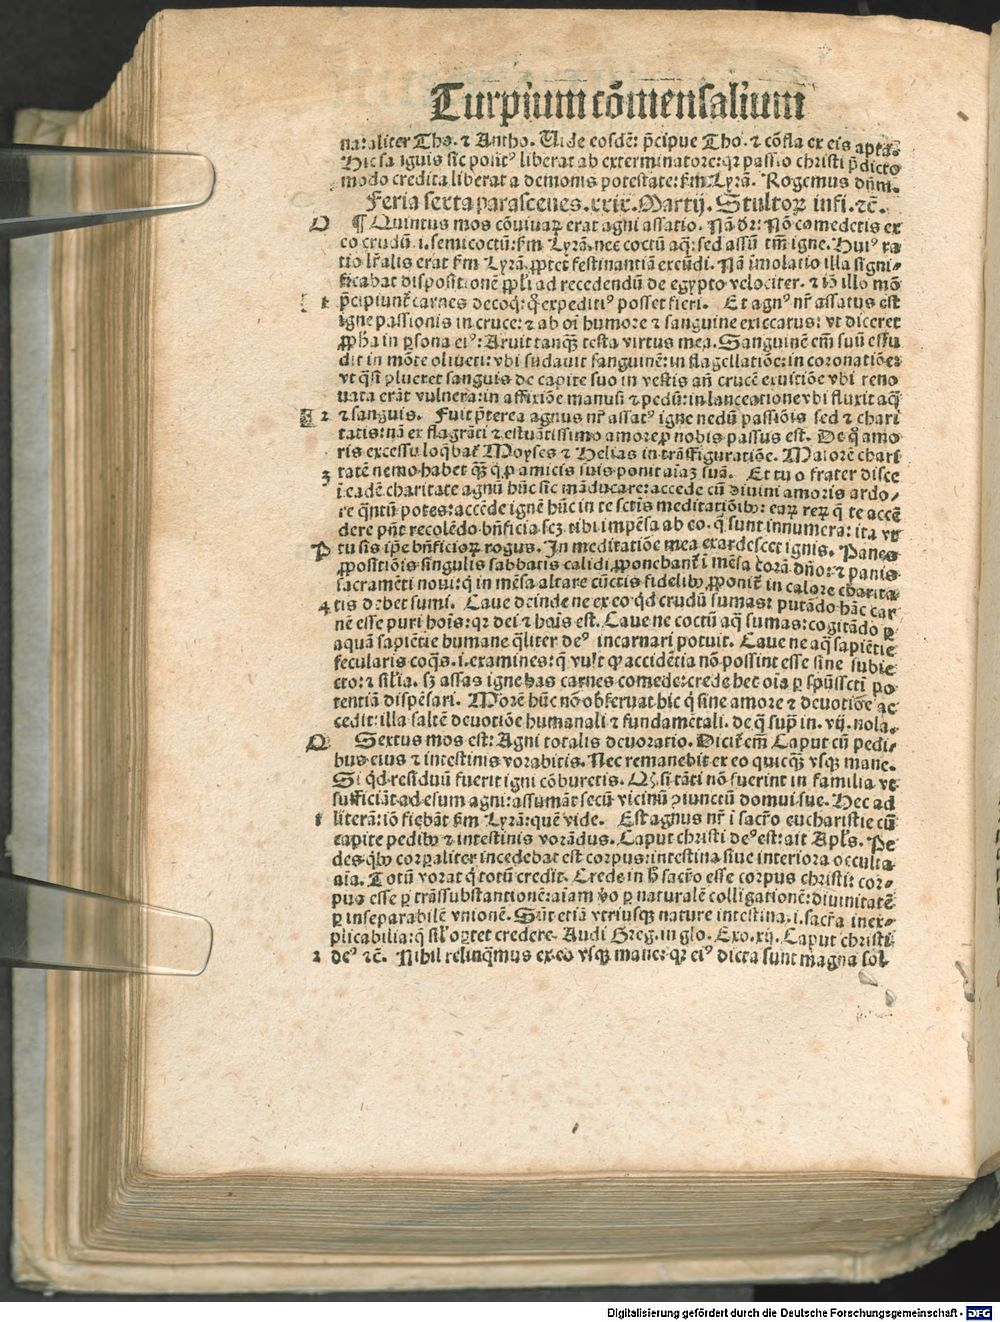 Turpium cōmensalium
na: aliter Tho. ⁊ Antho. Vide eosdē: p̄cipue Tho. ⁊ cōfla ex eis apta.
Hic sa iguis sic posit⁹ liberat ab exterminatore: qꝛ passio christi p̄dicto
modo credita liberat a demonis potestate: ẜm Lyrā. Rogemus dn̄m.
Feria sexta parasceues. xxix. Martij. Stultoꝝ infi. ⁊c̄.
O ¶ Quintus mos cōuiuaꝝ erat agni assatio. Nā dr̄: Nō comedetis ex
eo crudū .i. semicoctū: ẜm Lyrā. nec coctū aq̄: sed assū tm̄ igne. Hui⁹ ra
tio lr̄alis erat ẜm Lyrā. ꝓpter festinantiā exeūdi. Nā īmolatio illa signi-
ficabat dispositionē ppl̄i ad recedendū de egypto velociter. ⁊ iō illo mō
1 p̄cipiunt̄ carnes decoq: q̄ expeditius posset fieri. Et agn⁹ nr̄ assatus est
igne passionis in cruce: ⁊ ab oī humore ⁊ sanguine exiccatus: vt diceret
ꝓph̄a in ꝑsona ei⁹: Aruit tanq̄ʒ testa virtus mea. Sanguinē em̄ suū effu
dit in mōte oliueti: vbi sudauit sanguinē: in flagellatiōe: in coronatiōe:
vt q̄si plueret sanguis de capite suo in vestis an̄ crucē exuitiōe vbi reno
uata erāt vulnera: in affixiōe manuū ⁊ pedū: in lanceatione vbi fluxit aq̄
2 ⁊ sanguis. Fuit p̄terea agnus nr̄ assat⁹ igne nedū passiōis sed ⁊ chari
tatis: nā ex flagrāti ⁊ estuātissimo amore ꝓ nobis passus est. De q̄ amo
ris excessu loq̄bāt̄ Moyses ⁊ Helias in trāsfiguratiōe. Maiorē chari
3 tatē nemo habet q̄ʒ q̄ ꝓ amicis suis ponit aīaʒ suā. Et tu o frater disce
ī eadē charitate agnū hūc sic māducare: accede cū diuini amoris ardo-
re q̄ntū potes: accēde ignē hūc in te sctīs meditatiōibꝰ: eaꝝ reꝝ q̄ te accē
dere pn̄t recolēdo bn̄ficia scʒ tibi impēsa ab eo. q̄ sunt innumera: ita vt
P tu sis ip̄e bn̄ficioꝝ rogus. In meditatiōe mea exardescet ignis. Panes
ꝓpositiōis singulis sabbatis calidi ꝓponebant̄ ī mēsa corā dn̄o: ⁊ panis
sacramēti noui: q̄ in mēsa altare cūctis fidelibꝰ ꝓponit̄ in calore charita
4 tis debet sumi. Caue deinde ne ex eo q̄d crudū sumas: putādo hāc car
nē esse puri hois: qꝛ dei ⁊ hois est. Caue ne coctū aq̄ sumas: cogitādo ꝑ
aquā sapiētie humane q̄liter de⁹ incarnari potuit. Caue ne aq̄ sapiētie
secularis coq̄s .i. examines: q̄ vult ꝙ accidētia nō possint esse sine subie
cto: ⁊ sil̄ia. sʒ assas igne has carnes comede: crede hec oīa ꝑ spūssctī po
tentiā dispēsari. Morē hūc nō obseruat hic q̄ sine amore ⁊ deuotiōe ac
cedit: illa saltē deuotiōe humanali ⁊ fundamētali. de q̄ sup̄ in. vij. nola.
Q Sextus mos est: Agni totalis deuoratio. Dicit̄ em̄ Caput cū pedi-
bus eius ⁊ intestinis vorabitis. Nec remanebit ex eo quicq̄ʒ vsqʒ mane.
Si q̄d residuū fuerit igni cōburetis. Qʒ si tāti nō fuerint in familia vt
sufficiāt ad esum agni: assumāt secū vicinū ꝯiunctū domui sue. Hec ad
1 literā: iō fiebāt ẜm Lyrā: quē vide. Est agnus nr̄ ī sacr̄o eucharistie cū
capite pedibꝰ ⁊ intestinis vorādus. Caput christi de⁹ est: ait Apl̄s. Pe
des q̄bꝰ corꝑaliter incedebat est corpus: intestina siue interiora occulta
aīa. Totū vorat q̄ totū credit. Crede in h̄ sacr̄o esse corpus christi: cor-
pus ꝑ trāssubstantionē: aīam ꝟo ꝑ naturalē colligationē: diuinitatē
ꝑ inseparabilē vnionē. Sūt etiā vtriusqʒ nature intestina .i. sacr̄a inex-
plicabilia: q̄ sil̄ oꝑtet credere. Audi Greg. in glo. Exo. xij. Caput christi
2 de⁹ ⁊c̄. Nihil relinq̄mus ex eo vsqʒ mane: qꝛ ei⁹ dicta sunt magna sol
Digitalisierung gefördert durch die Deutsche Forschungsgemeinschaft - DFG